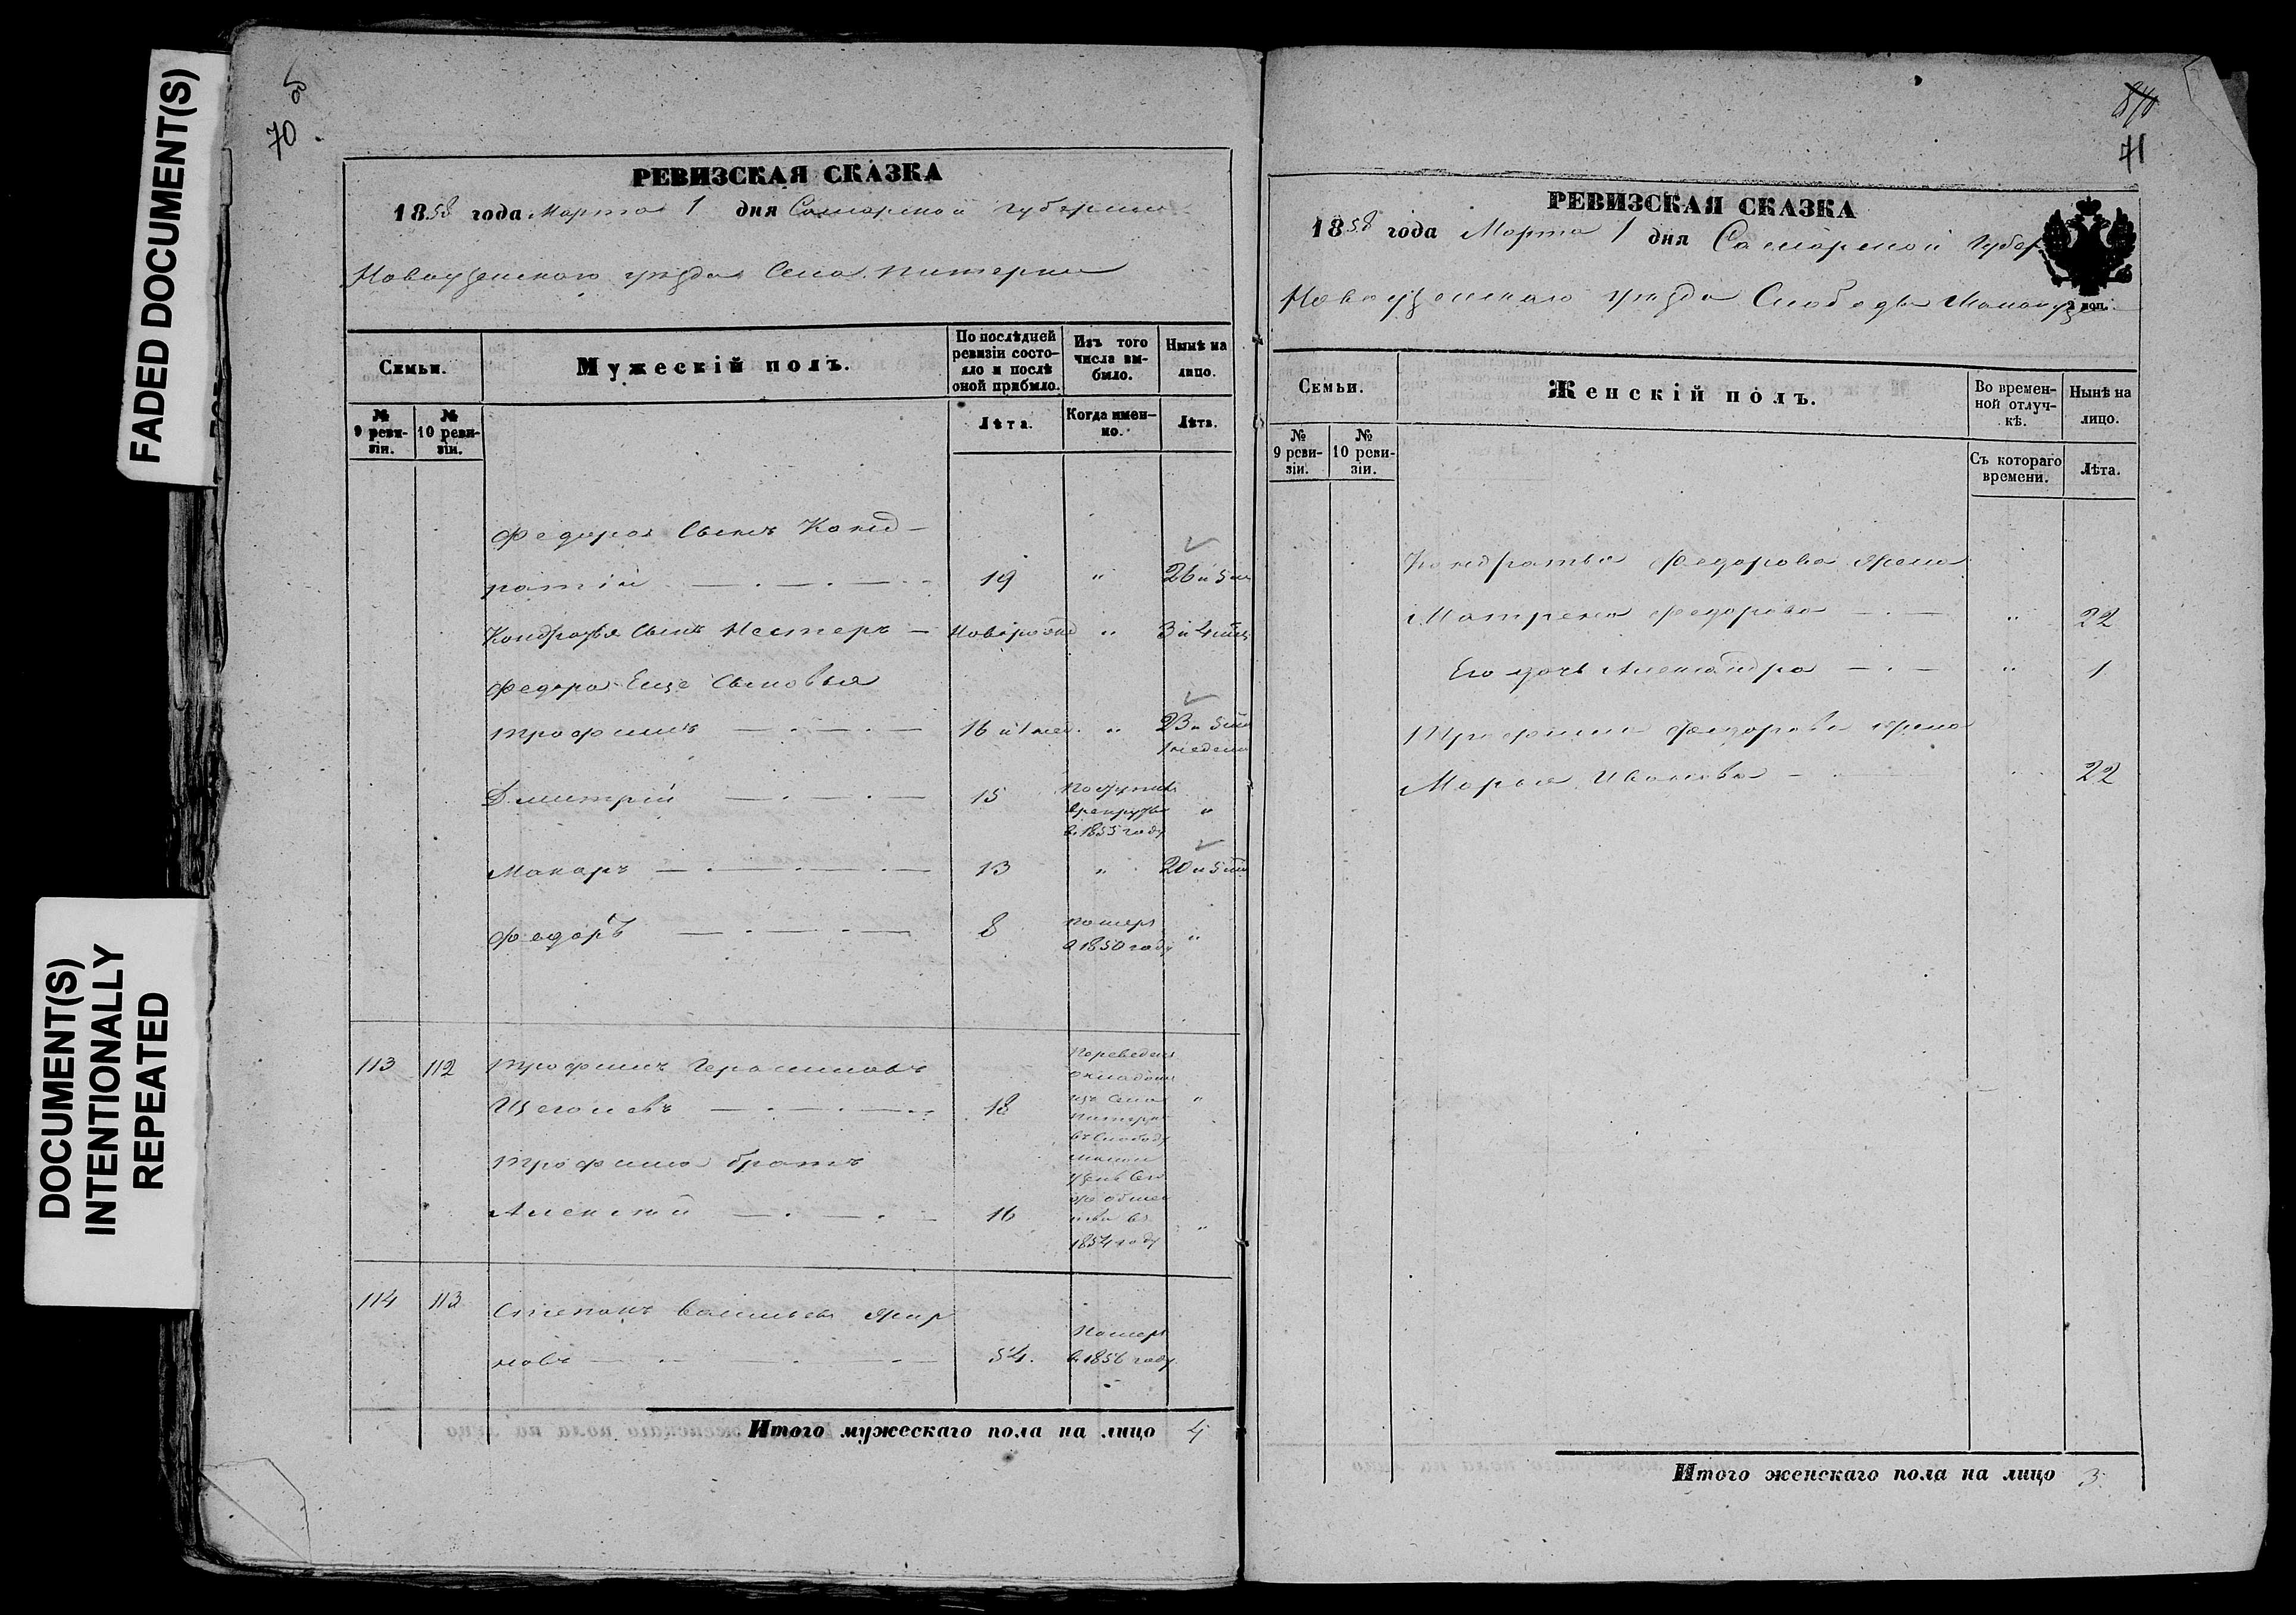 FADED DOCUMENT(S)
DOCUMENT(S)
INTENTIONALLY
REPEATED
70
РЕВИЗСКАЯ СКАЗКА
1858 года Марта 1 дня Самарской губернии
Новоузенского уѣзда Села Питерки
Семьи.
Мужескій полъ.
По послѣдней ревизіи состояло и послѣ оной прибыло.
Изъ того числа выбыло.
Нынѣ на лицо.
№ 9 ревизіи.
№ 10 ревизіи.
Лѣта.
Когда именно.
Лѣта.
Федора Сынъ Конд-
ратій 19 " 26 и 5
Кондратья Сынъ Нестеръ Новорожд " 3 и 4
Федора Еще Сыновья
Трофимъ 16 и 1 " 23 и 5
Дмитрій 15 Поступилъ
в рекруты "
в 1855 году
Макаръ 13 " 20 и 5
Федоръ 8 померъ
в 1850 году "
113 112 Трофимъ Герасимовъ
Щеголевъ 18 "
Трофима братъ
Алексѣй 16 "
Переведенъ
окладомъ
изъ Села
Питерки
въ Слободу
1854 году
114 113 Степанъ Васильевъ Жир
новъ 54. Померъ
в 1856 году.
Итого мужескаго пола на лицо 4
71
РЕВИЗСКАЯ СКАЗКА
1858 года Марта 1 дня Самарской Губер
Новоузенского уѣзда Слободы
2 коп.
Семьи.
Женскій полъ.
Во временной отлучкѣ.
Нынѣ на лицо.
№ 9 ревизіи.
№ 10 ревизіи.
Съ котораго времени.
Лѣта.
Кондратья Федорова жена
Матрена Федорова " 22
Его дочь Александра " 1
Трофима Федорова жена
Марья Иванова 22
Итого женскаго пола на лицо 3